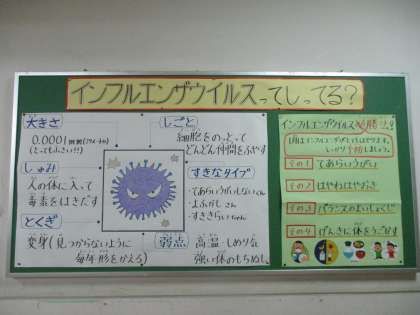 インフルエンザウイルスってしってる？
大きさ
0.0001ミリ
(とっても小さい!!)
しゅみ
人の体に入って
毒素をはきだす
とくぎ
変身(見つからないように
毎年形をかえる)
しごと
細胞をのっとって
どんどん仲間をふやす
すきなタイプ
・てあらいうがいしないくん
・よふかしさん
・すききらいちゃん
弱点
高温 しめりけ
強い体のもちぬし
インフルエンザウイルス必勝法!
しっかり予防しましょう。
その1 てあらいうがい
その2 はやねはやおき
その3 バランスのよいしょくじ
その4 げんきに体をうごかす